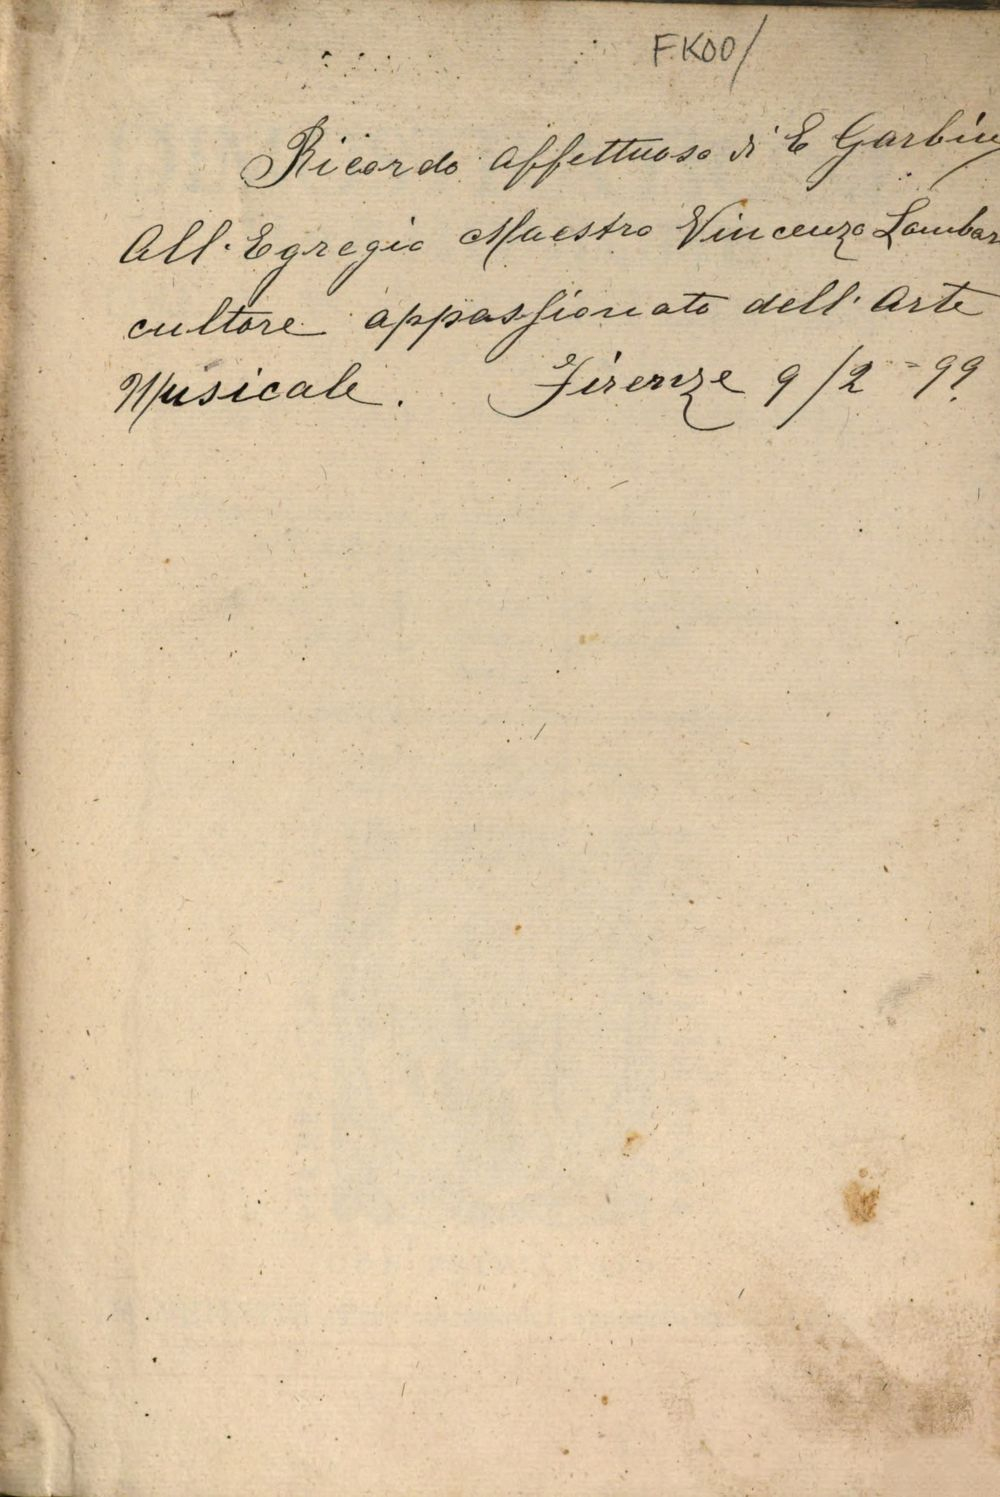 FK00/
Ricordo affettuoso di E Garbin
All'Egregio Maestro Vincenzo Lombar
cultore appassionato dell'Arte
Musicale. Firenze 9/2=99.